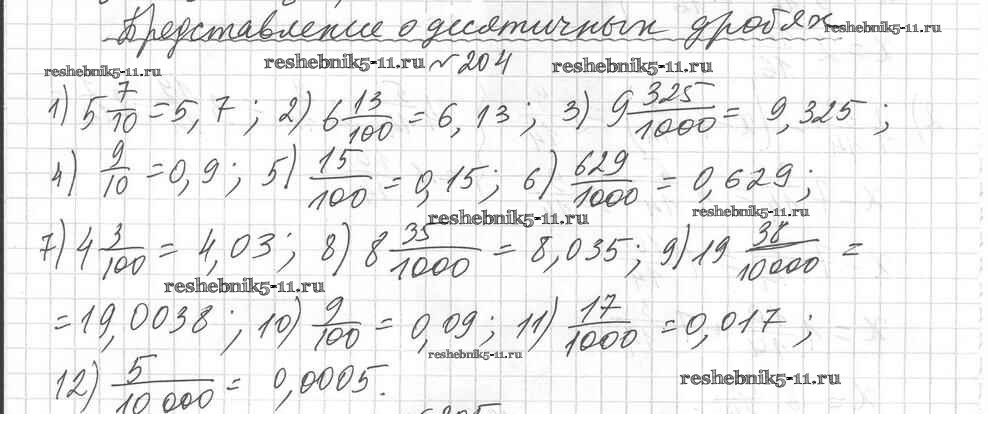 Представление о десятичных дробях
reshebnik5-11.ru
reshebnik5-11.ru № 204 reshebnik5-11.ru
reshebnik5-11.ru
1) 5 7/10 = 5,7; 2) 6 13/100 = 6,13; 3) 9 325/1000 = 9,325;
4) 9/10 = 0,9; 5) 15/100 = 0,15; 6) 629/1000 = 0,629;
reshebnik5-11.ru reshebnik5-11.ru
7) 4 3/100 = 4,03; 8) 8 35/1000 = 8,035; 9) 19 38/10000 =
reshebnik5-11.ru
= 19,0038; 10) 9/100 = 0,09; 11) 17/1000 = 0,017;
reshebnik5-11.ru
12) 5/10 000 = 0,0005.
reshebnik5-11.ru